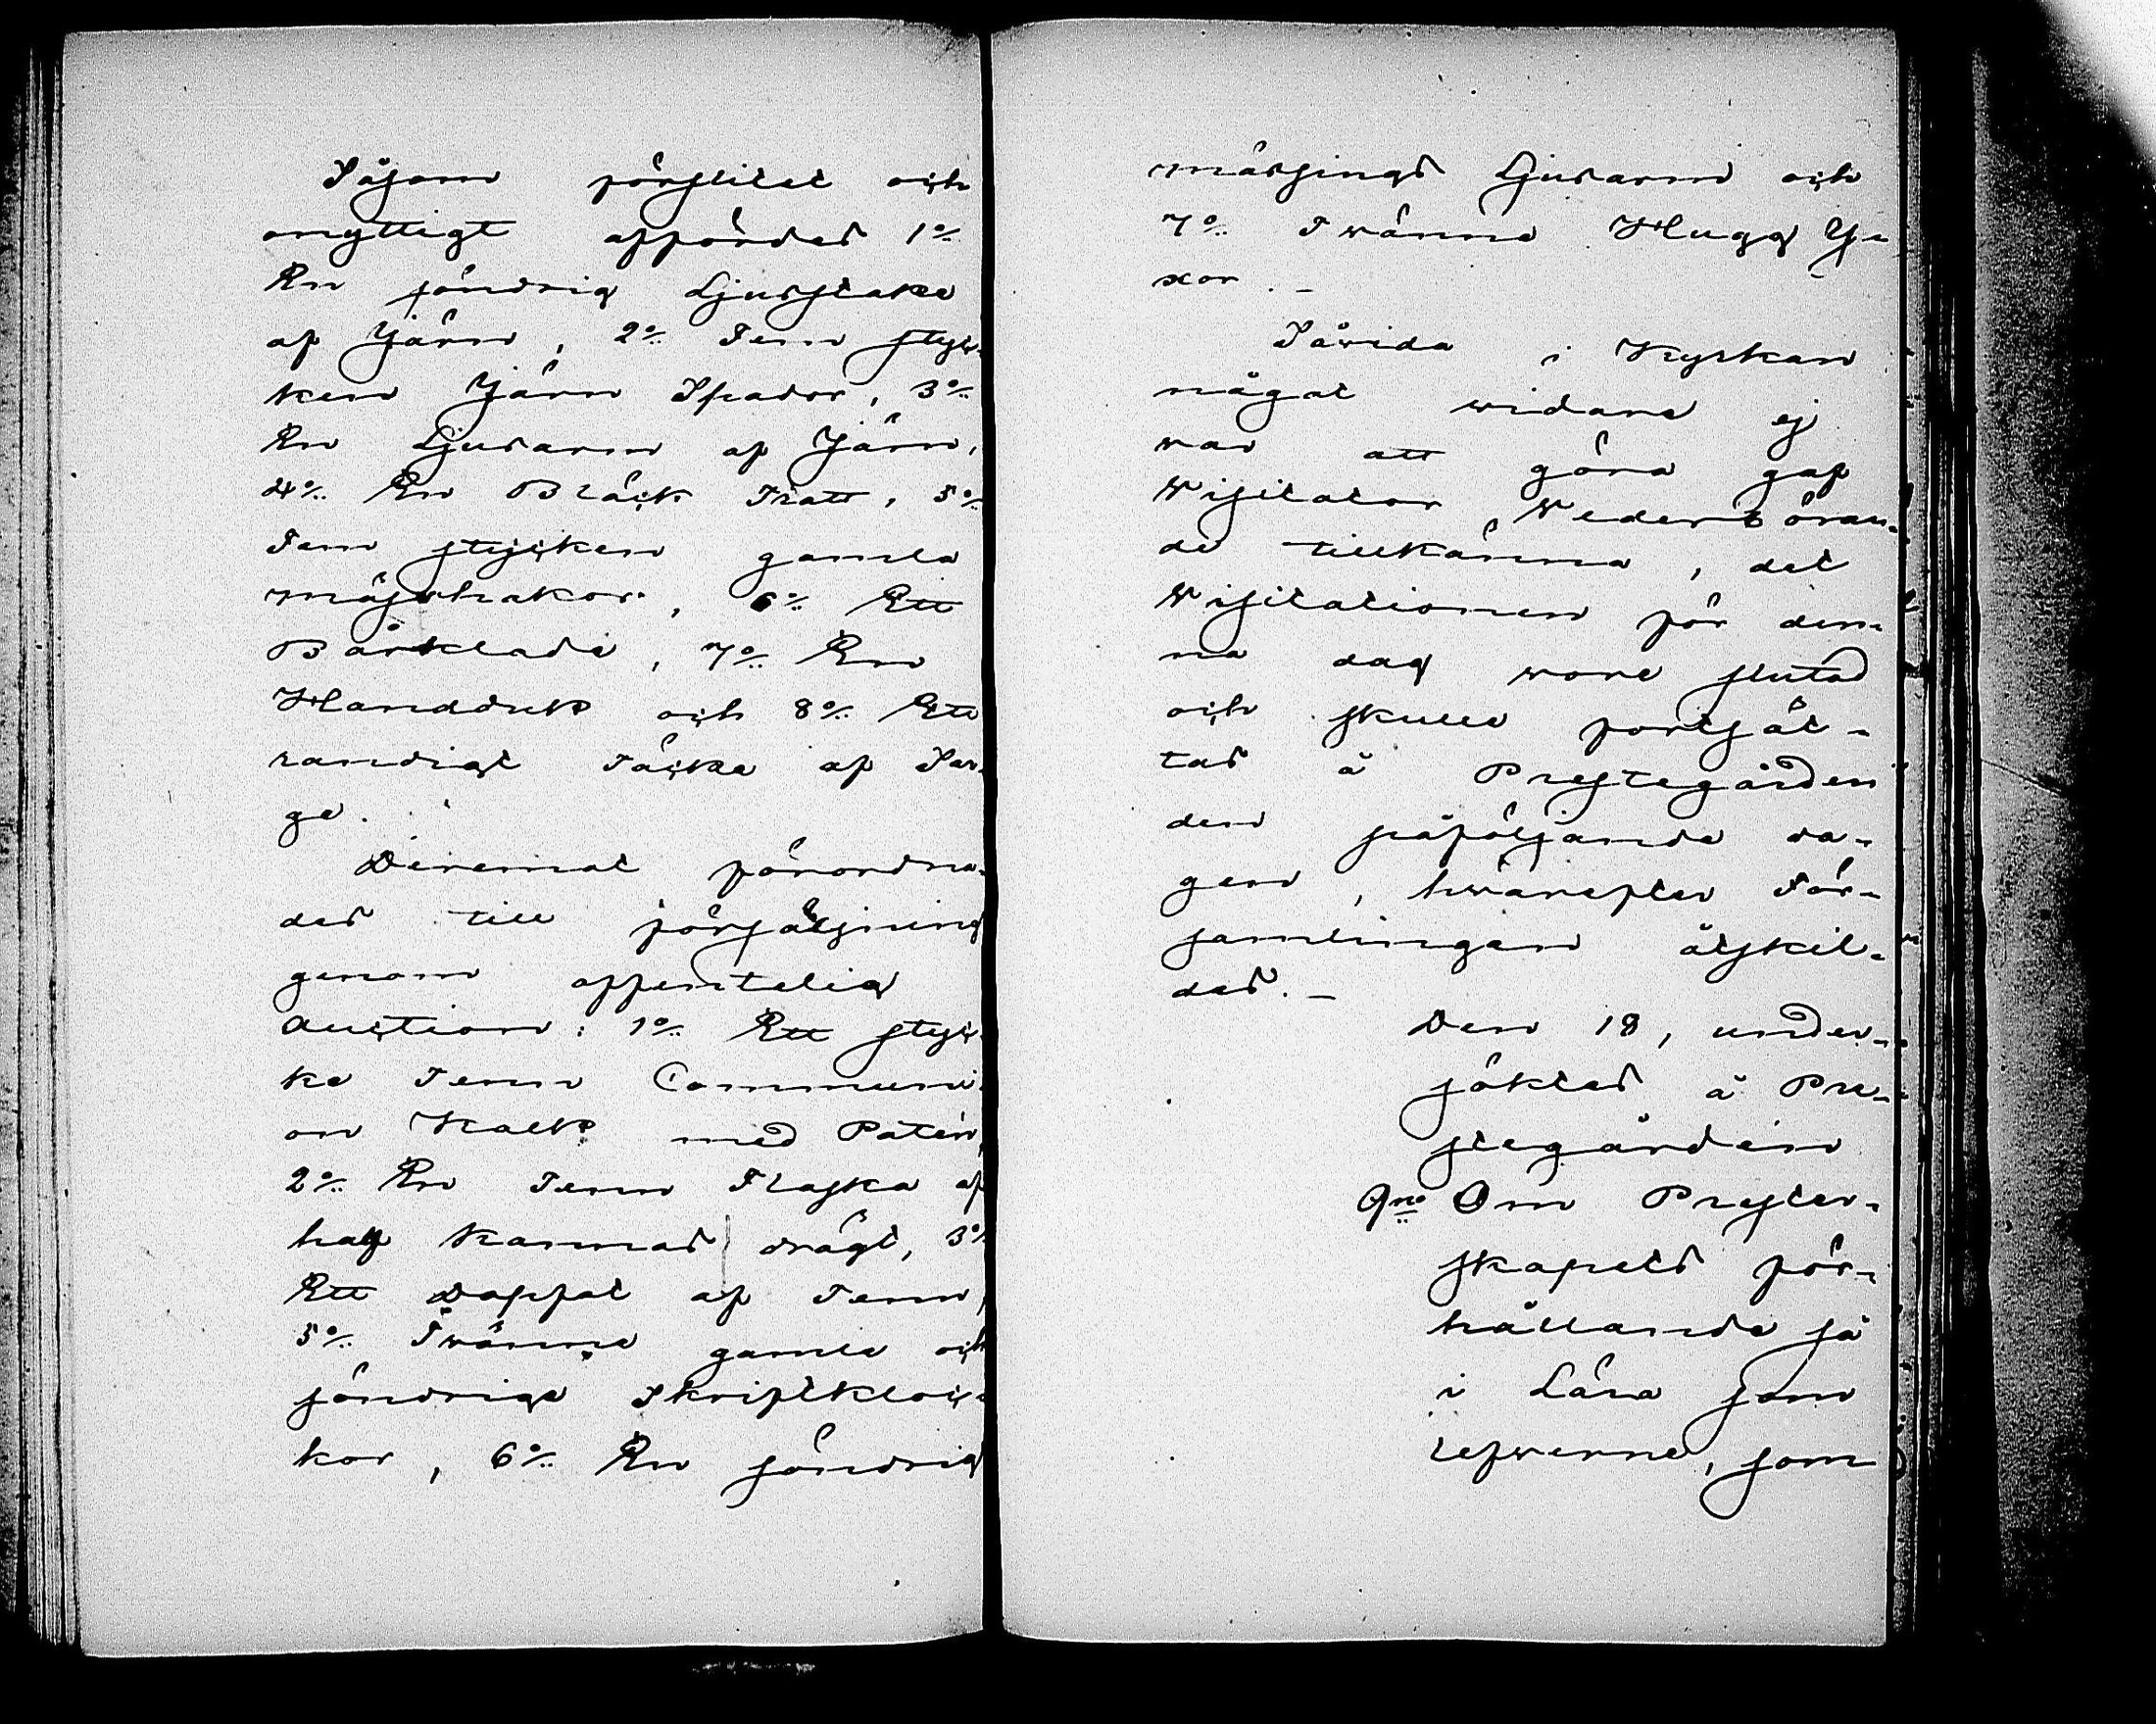 Såsom förslitet och
onyttigt affördes 1:o
En söndrig Ljusstake
af Järn, 2:o Fem styc-
ken Järn Spador, 3:o
En Ljusarm af Järn,
4:o En Bläck Tratt, 5:o
Fem stycken gamla
mässhakor, 6:o Ett
Bårklade, 7:o En
Handduk och 8:o Ett
randigt Täcke af Sar-
ge.
Deremot förordna-
des till försäljning
genom offentelig
Auction: 1:o Ett styc-
ke Tenn Communi-
on Kalk med Patén,
2:o En Tenn Flaska af
half Kannas drägt, 3:o
Ett Doppat af Tenn,
5:o Twänne gamla och
söndriga Skriftkloc-
kor, 6:o En söndrig
mässings Ljusarm och
7:o Twänne Hugg Y-
xor. -
Såwida i Kyrkan
något widare ej
war att göra gaf
Wisitator Wederböran-
de tillkänna, det
Wisitationen för den-
na dag wore slutad
och skulle fortsät-
tas å Prestegården
den påföljande da-
gen, hwarefter För-
samlingen åtskil-
des. -
Den 18, under-
söktes å Pre-
stegården
9:no Om Prester-
skapets för-
hållande så
i Lära som
lefwerne, som